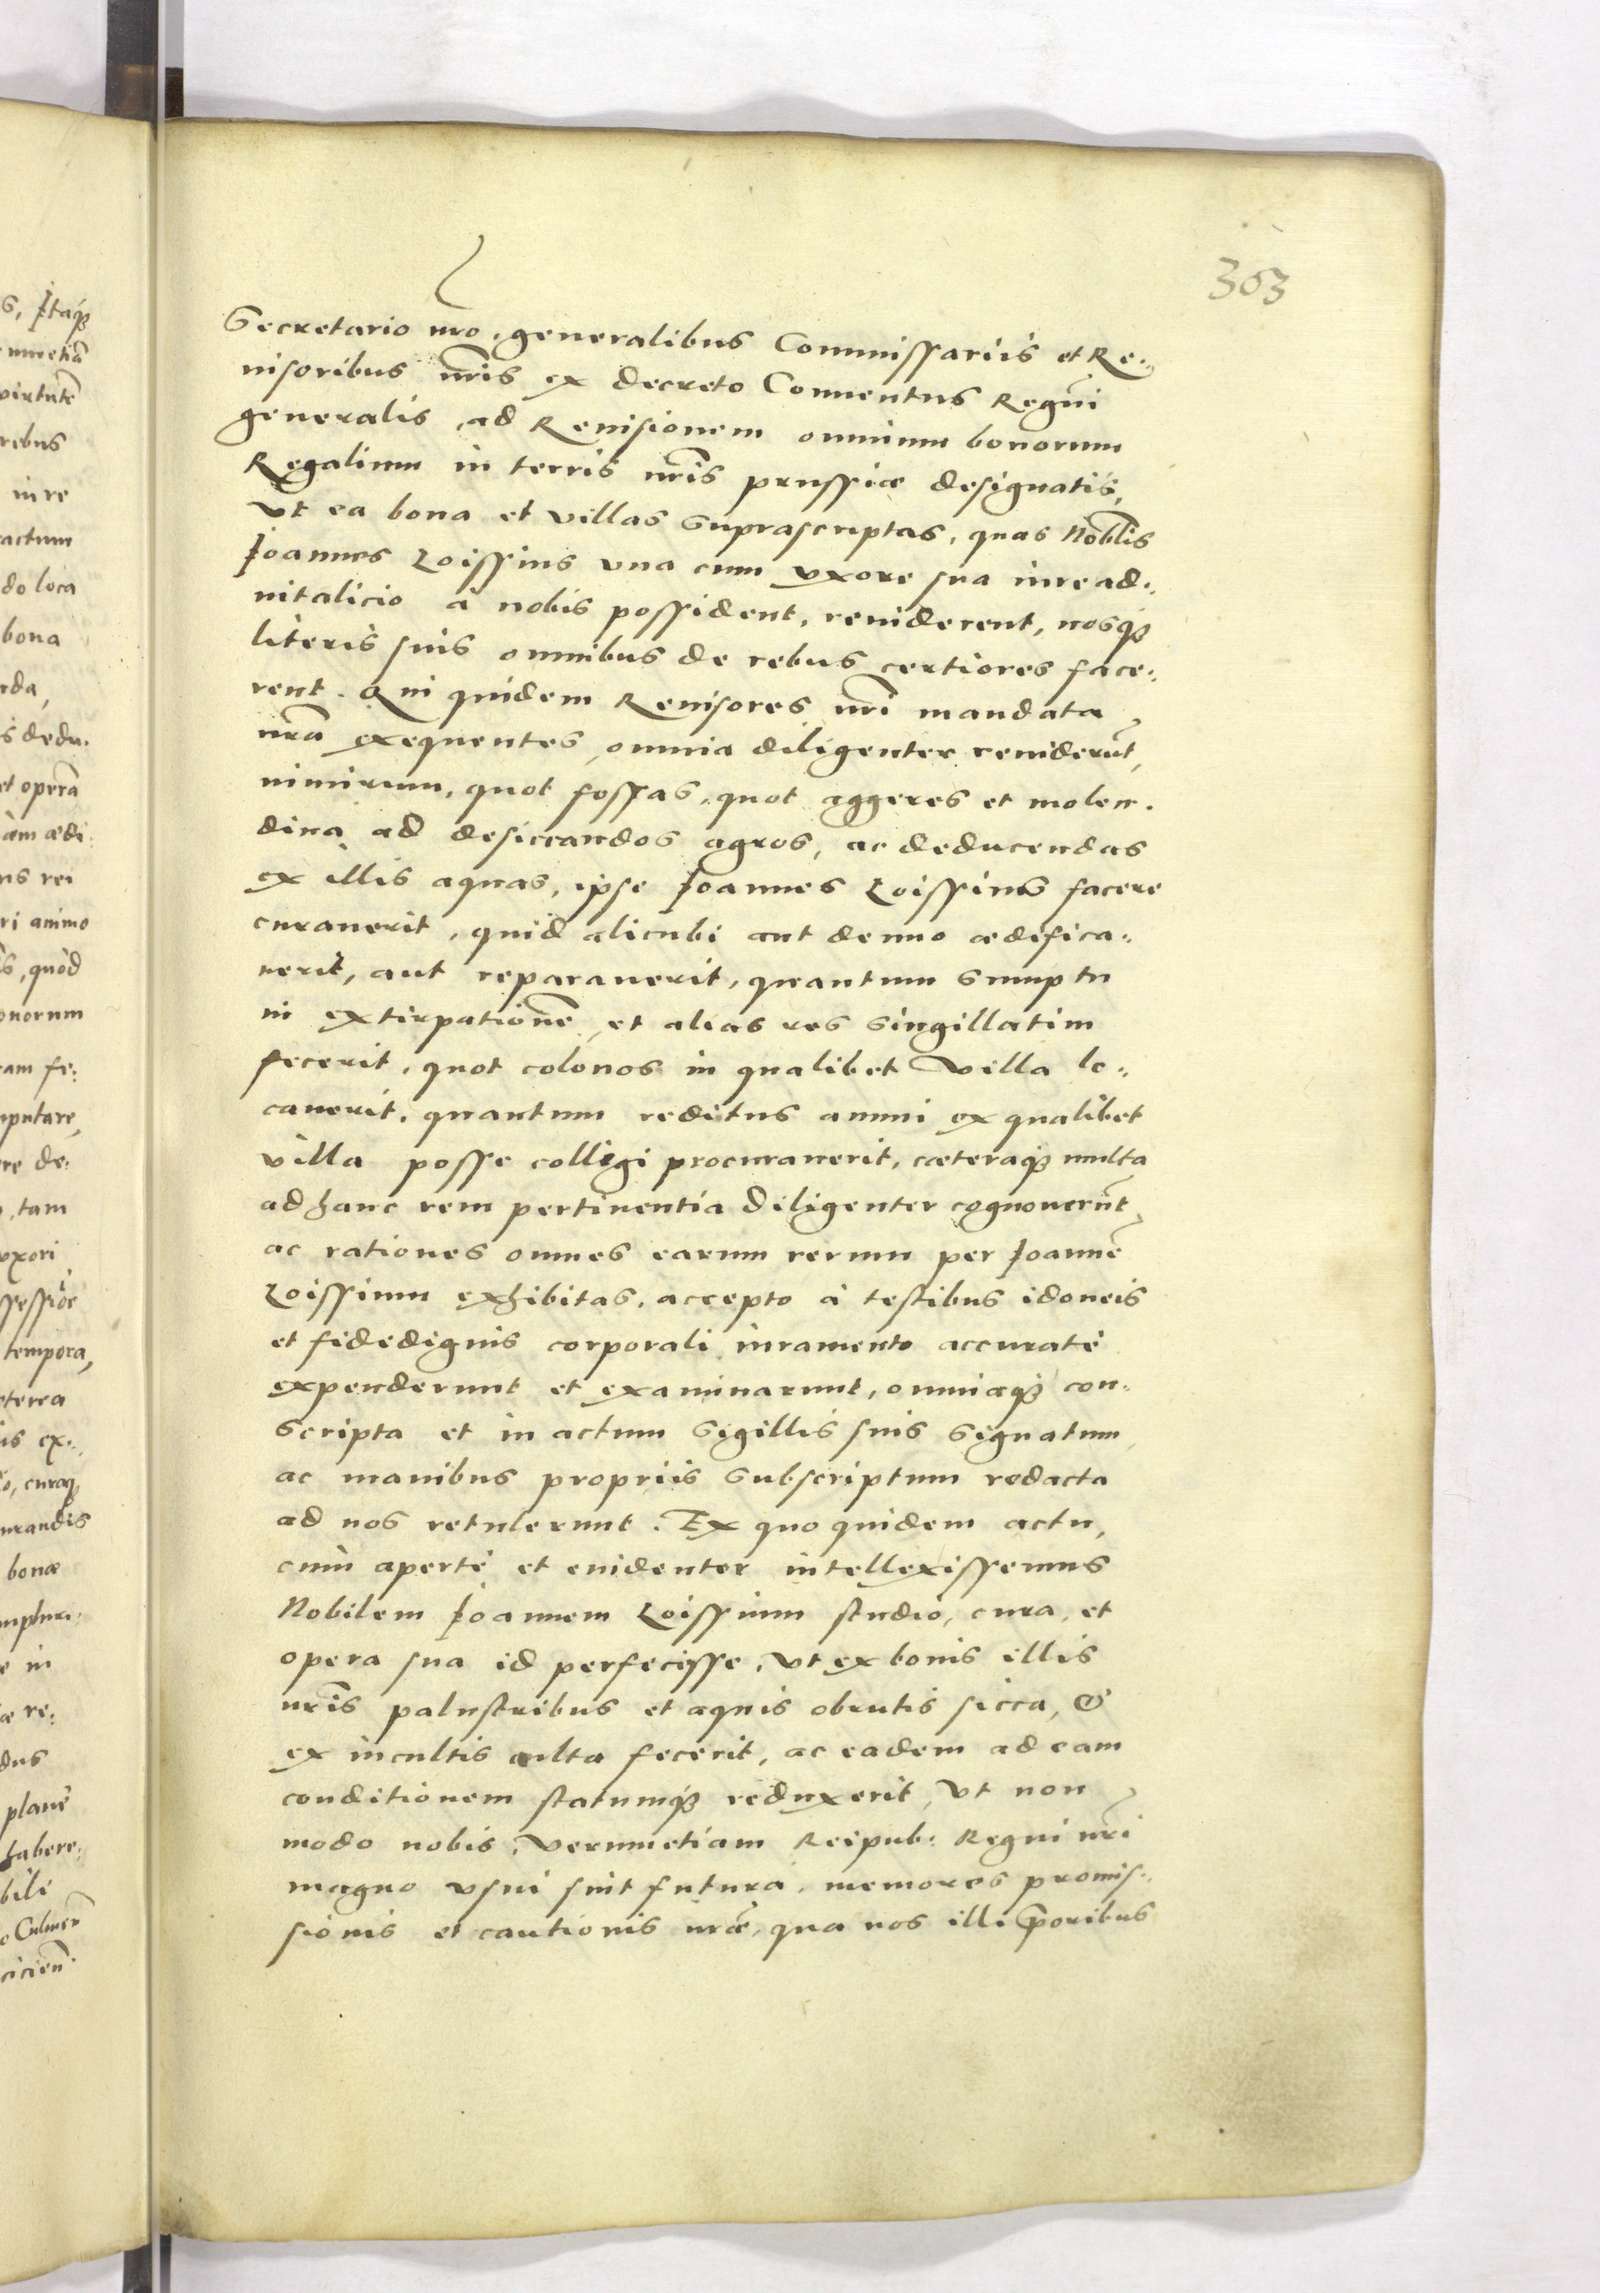 303
Secretario nro, generalibus Commissariis et Re:
uisoribus nris ex decreto Conuentus Regni
generalis, ad Reuisionem omnium bonorum
Regalium in terris nris prussiæ designatis,
Vt ea bona et villas suprascriptas, quas Noblis
Joannes Loissius vna cum vxore sua iure ad:
uitalicio à nobis possident, reuiderent, nosq́
literis suis omnibus de rebus certiores face:
rent. Qui quidem Reuisores nri mandata
nra exequentes, omnia diligenter reuiderũt,
nimirum, quot fossas, quot aggeres et molen:
dina ad desiccandos agros, ac deducendas
ex illis aquas, ipse Joannes Loissius facere
curauerit, quid alicubi aut denuo ædifica:
uerit, aut reparauerit, quantum sumptu
in extirpationẽ et alias res singillatim
fecerit, quot colonos in qualibet villa lo:
cauerit, quantum reditus annui ex qualibet
villa posse colligi procurauerit, cæteraq́ multa
ad hanc rem pertinentia diligenter cognouerũt,
ac rationes omnes earum rerum per Joannẽ
Loissium exhibitas, accepto à testibus idoneis
et fidedignis corporali iuramento accuratè
expenderunt et examinarunt, omniaq́ con:
scripta et in actum sigillis suis signatum,
ac manibus propriis subscriptum redacta
ad nos retulerunt. Ex quo quidem actu,
cum apertè et euidenter intellexissemus
Nobilem Joannem Loissium studio, cura, et
opera sua id perfecisse, Vt ex bonis illis
nris palustribus et aquis obrutis sicca, &
ex incultis culta fecerit, ac eadem ad eam
conditionem statumq́ reduxerit, Vt non
modo nobis, verumetiam Reipub: Regni nri
magno vsui sint futura, memores promis:
sionis et cautionis nræ, qua nos illi
s, Itaq́
rebus
in re
do loca
bona
et operã
ri animo
quòd
tam
vxori
tempora,
bonæ
in
planè
habere: